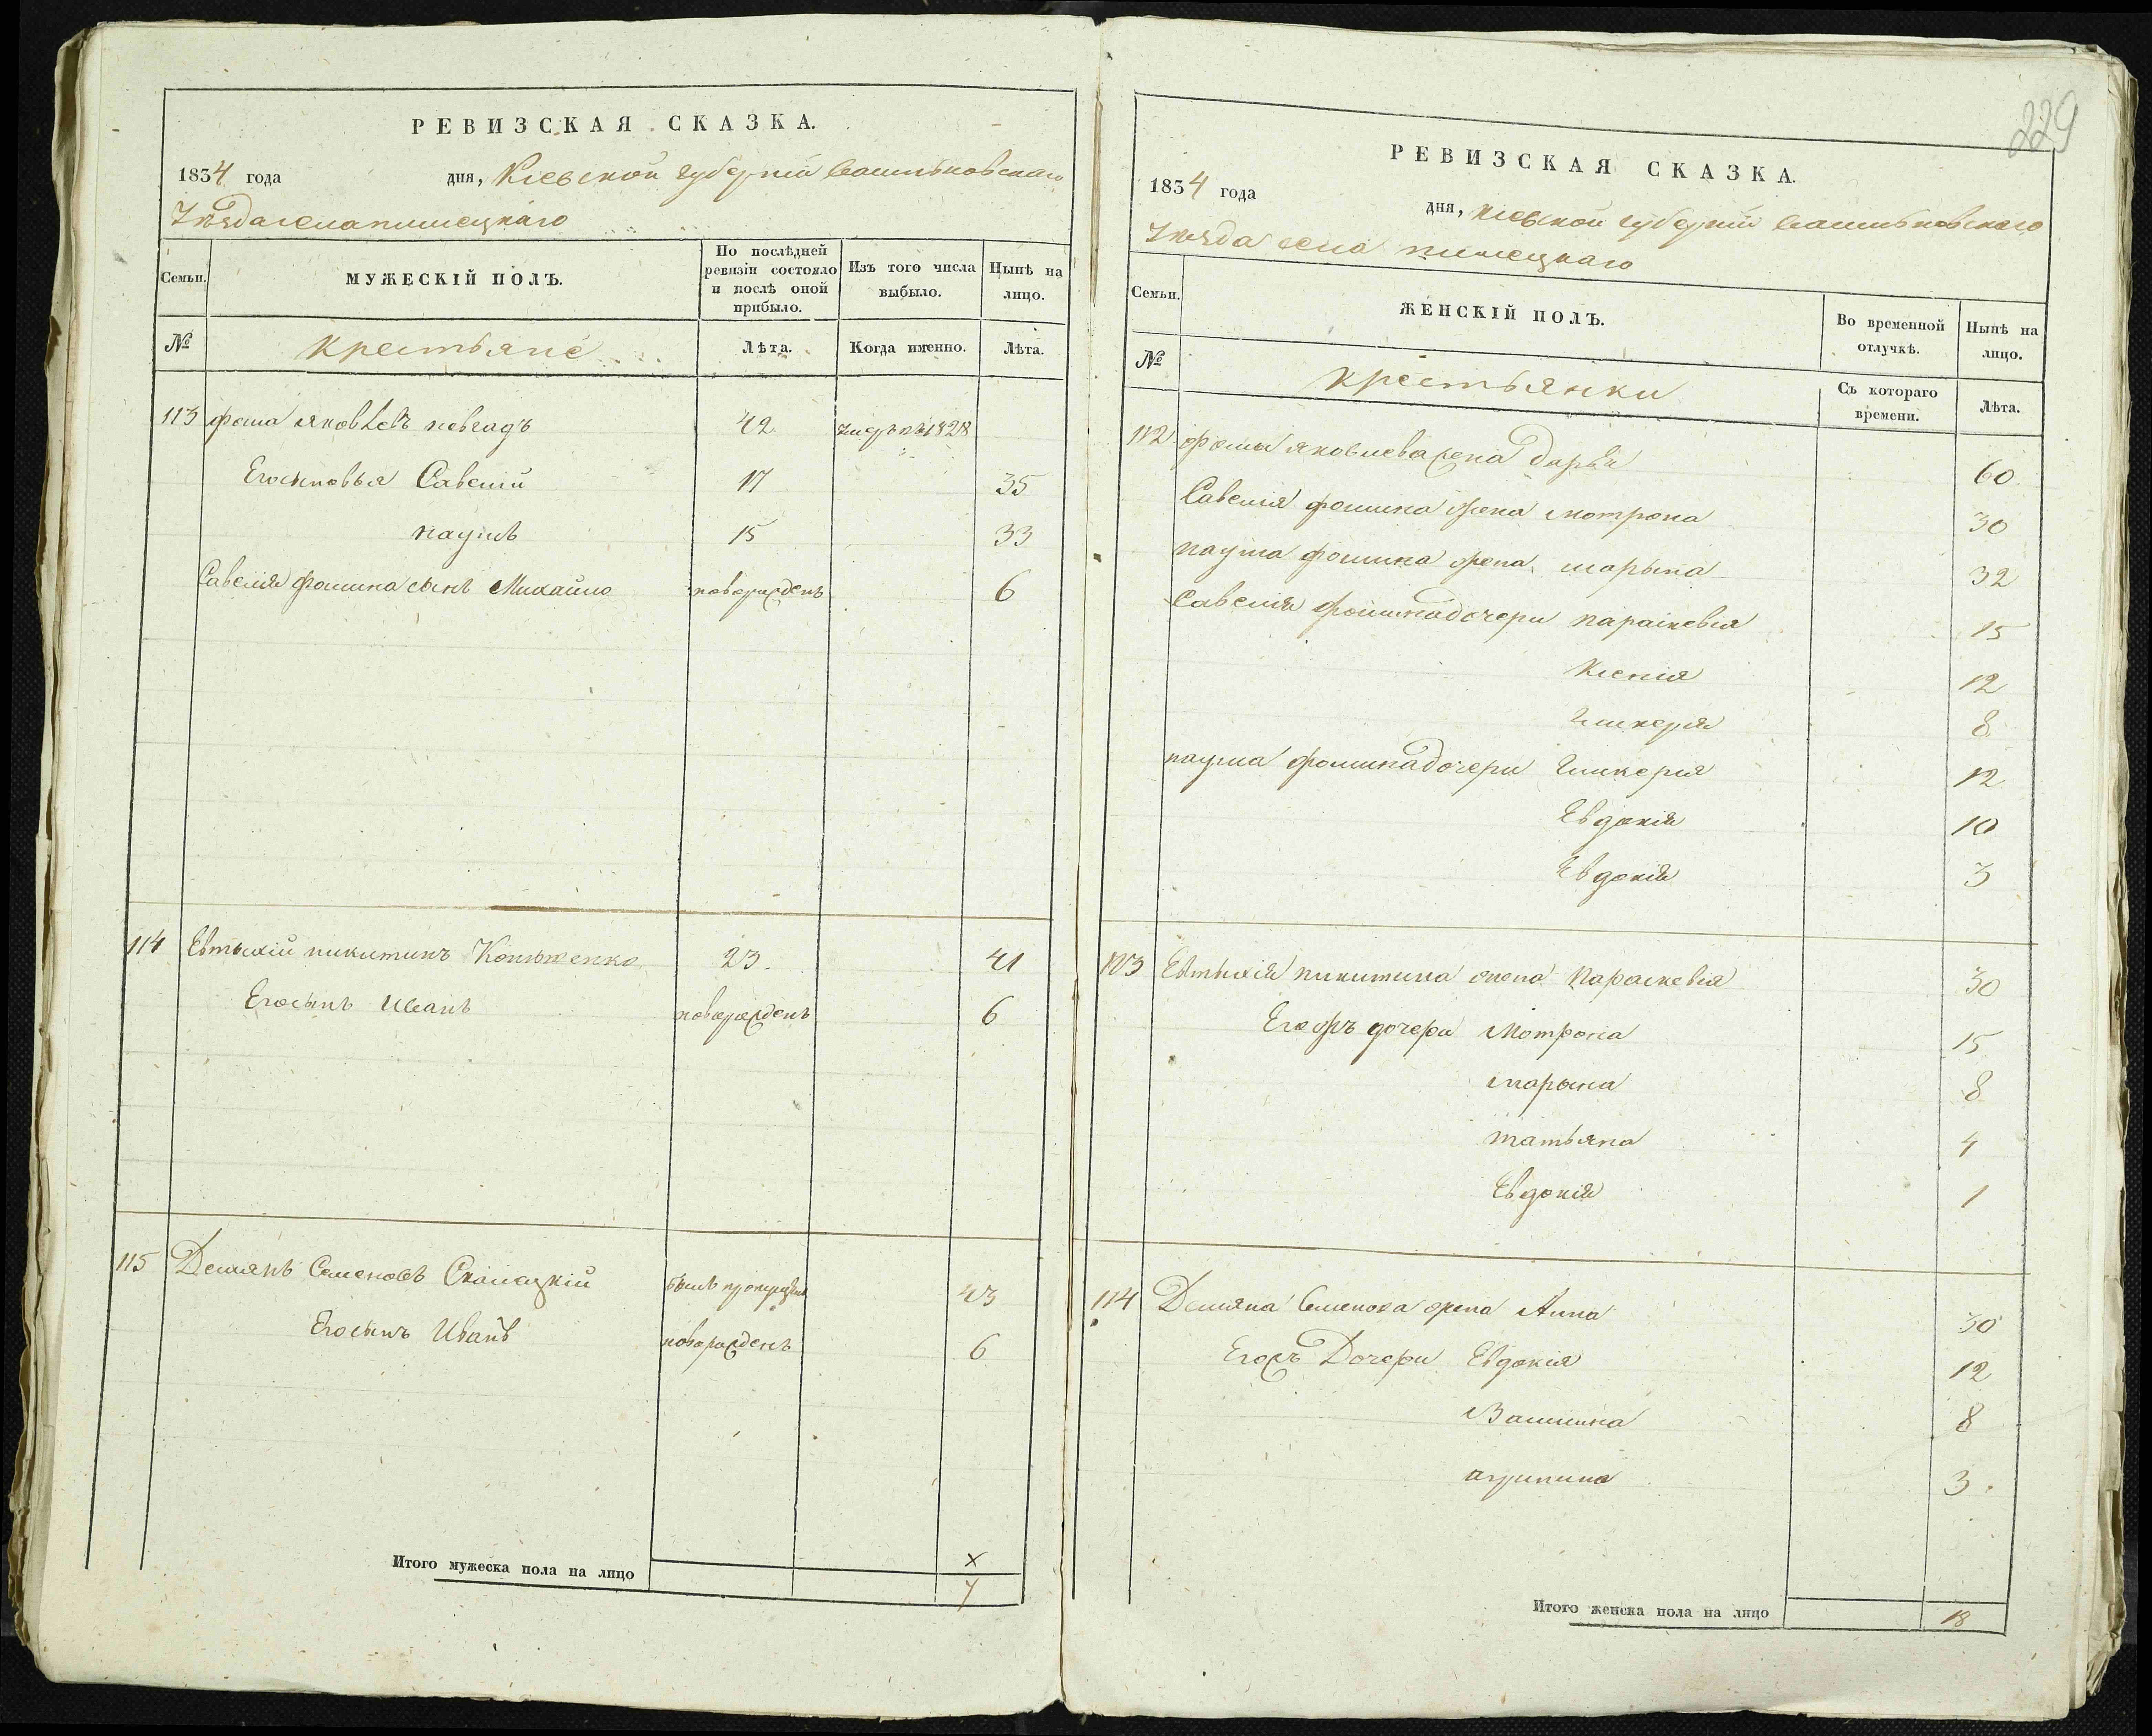 229
РЕВИЗСКАЯ СКАЗКА.
1834 года дня, Кіевской губерніи Васильковскаго
Уѣзда села
Семьи.
МУЖЕСКІЙ ПОЛЪ.
По послѣдней ревизіи состояло и послѣ оной прибыло.
Изъ того числа выбыло.
Нынѣ на лицо.
№
Крестьяне
Лѣта.
Когда именно.
Лѣта.
113 Фома Яковлевъ 42 умеръ въ 1828
Его сыновья Савелій 17 35
Наумъ 15 33
Савелія Фомина сынъ Михайло новорожденъ 6
114 Евтыхій Никитинъ 23. 41
Его сынъ Иванъ новорожденъ 6
115 Демянъ Семеновъ былъ пропущенъ 43
Его сынъ Иванъ новорожденъ 6
Итого мужеска пола на лицо
х
7
РЕВИЗСКАЯ СКАЗКА.
1834 года дня, Кіевской губерніи Васильковскаго
Уѣзда села
Семьи.
ЖЕНСКІЙ ПОЛЪ.
Во временной отлучкѣ.
Нынѣ на лицо.
№
Крестьянки
Съ котораго времени.
Лѣта.
112 Фомы Яковлева жена Дарья 60
Савелія Фомина жена Мотрона 30
Наума Фомина жена Марына 32
Савелія Фомина дочери Параскевія 15
Ксенія 12
Гликерія 8
Наума Фомина дочери Гликерія 12
Евдокія 10
Евдокія 3
113 Евтыхія Никитина жена Параскевія 30
Его жъ дочери Мотрона 15
Марына 8
Татьяна 4
Евдокія 1
114 Демяна Семенова жена Анна 30
Его жъ Дочери Евдокія 12
8
Агрипина 3.
Итого женска пола на лицо 18